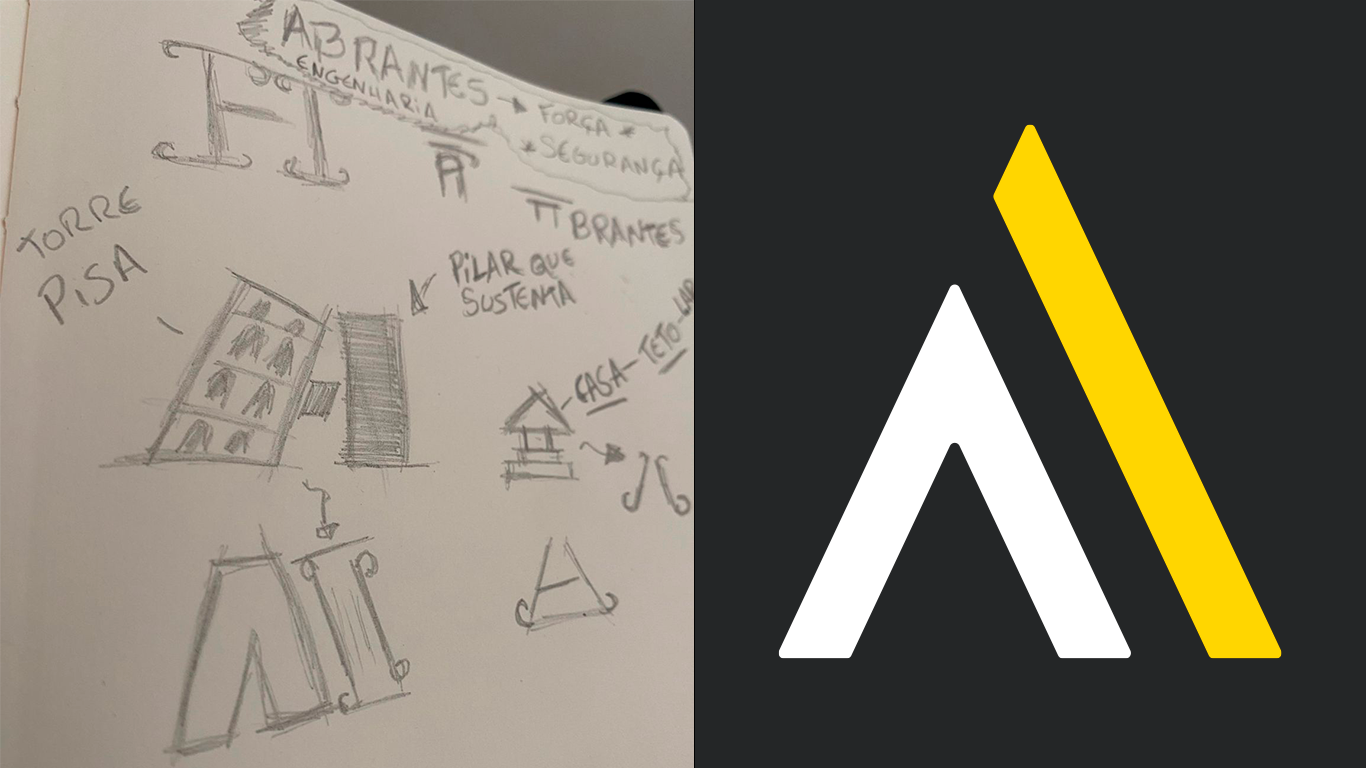 ABRANTES
ENGENHARIA
FORÇA *
* SEGURANÇA
BRANTES
TORRE
PISA
PILAR QUE
SUSTENTA
CASA - TETO - LAR
A